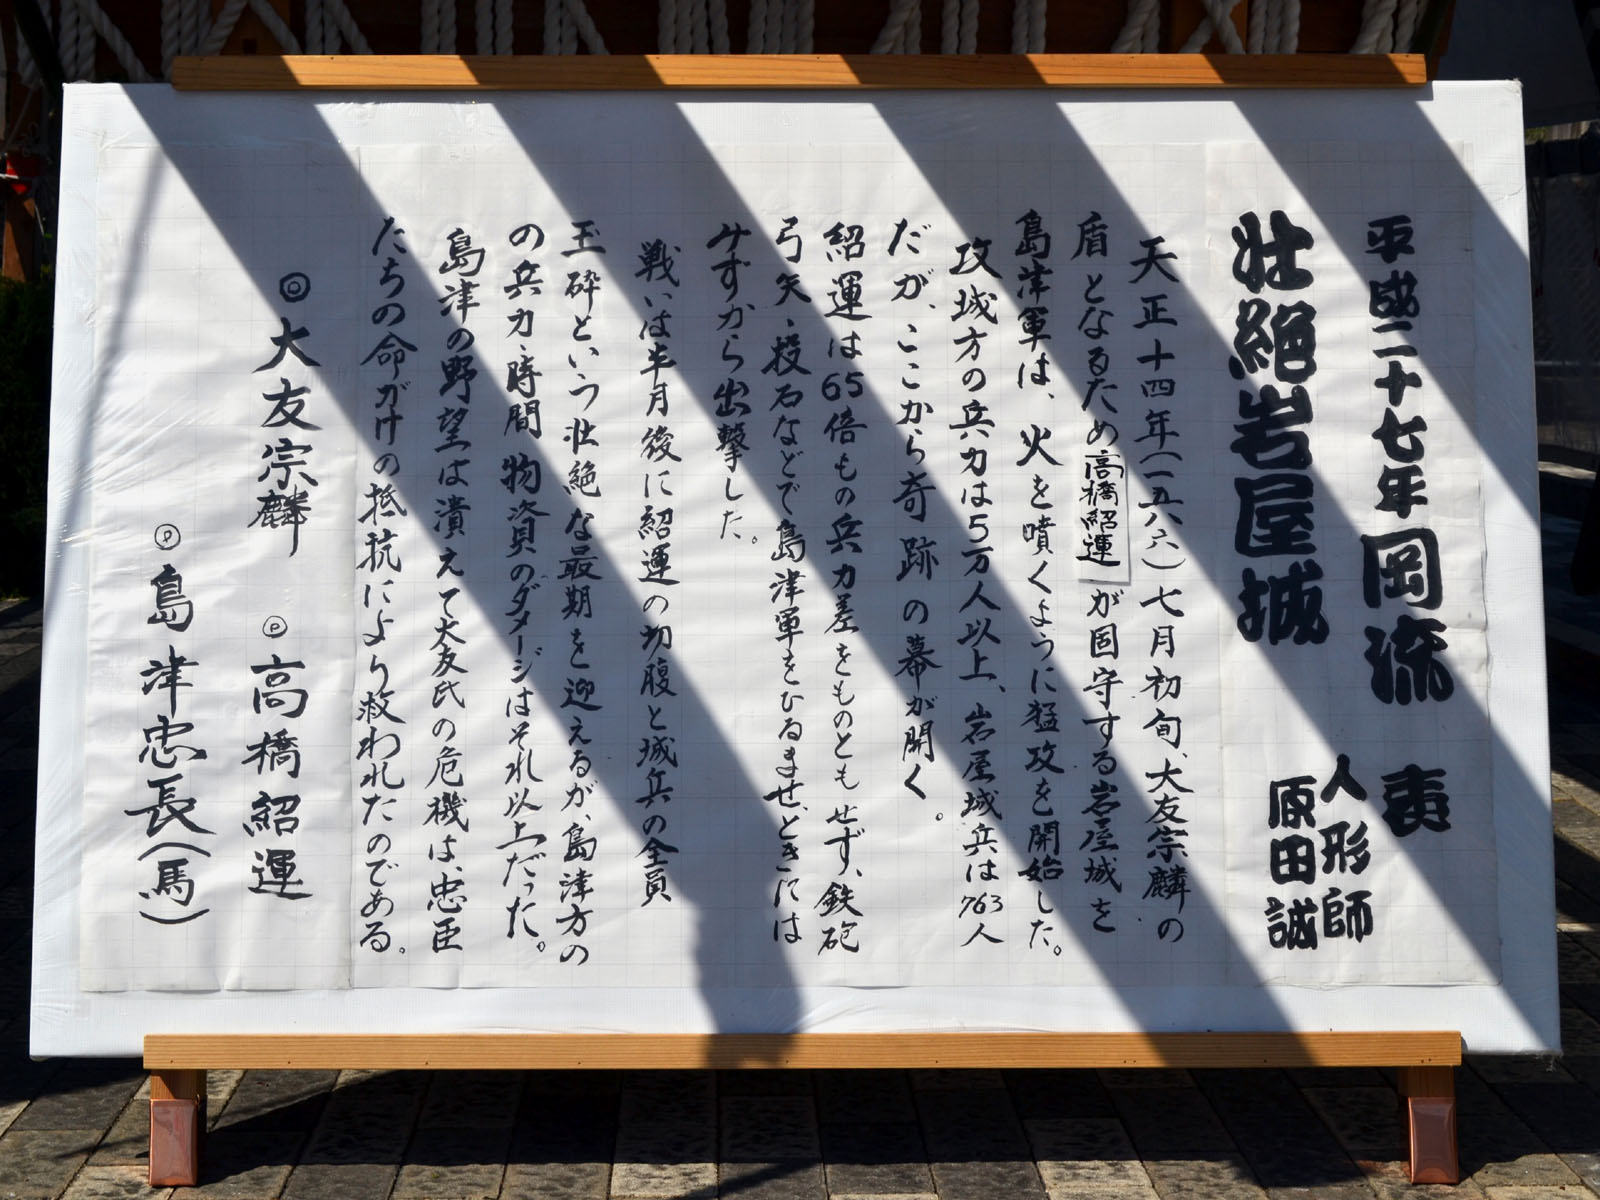 平成二十七年 岡流 表
壮絶岩屋城
人形師
原田誠
天正十四年(一五八六)七月初旬、大友宗麟の
盾となるため高橋紹運が固守する岩屋城を
島津軍は、火を噴くように猛攻を開始した。
攻城方の兵力は5万人以上、岩屋城兵は763人
だが、ここから奇跡の幕が開く。
紹運は65倍もの兵力差をものともせず、鉄砲
弓矢、投石などで島津軍をひるませ、ときには
みずから出撃した。
戦いは半月後に紹運の切腹と城兵の全員
玉砕という壮絶な最期を迎えるが、島津方の
の兵力、時間、物資のダメージはそれ以上だった。
島津の野望は潰えて大友氏の危機は、忠臣
たちの命がけの抵抗により救われたのである。
◎大友宗麟
◎高橋紹運
◎島津忠長(馬)